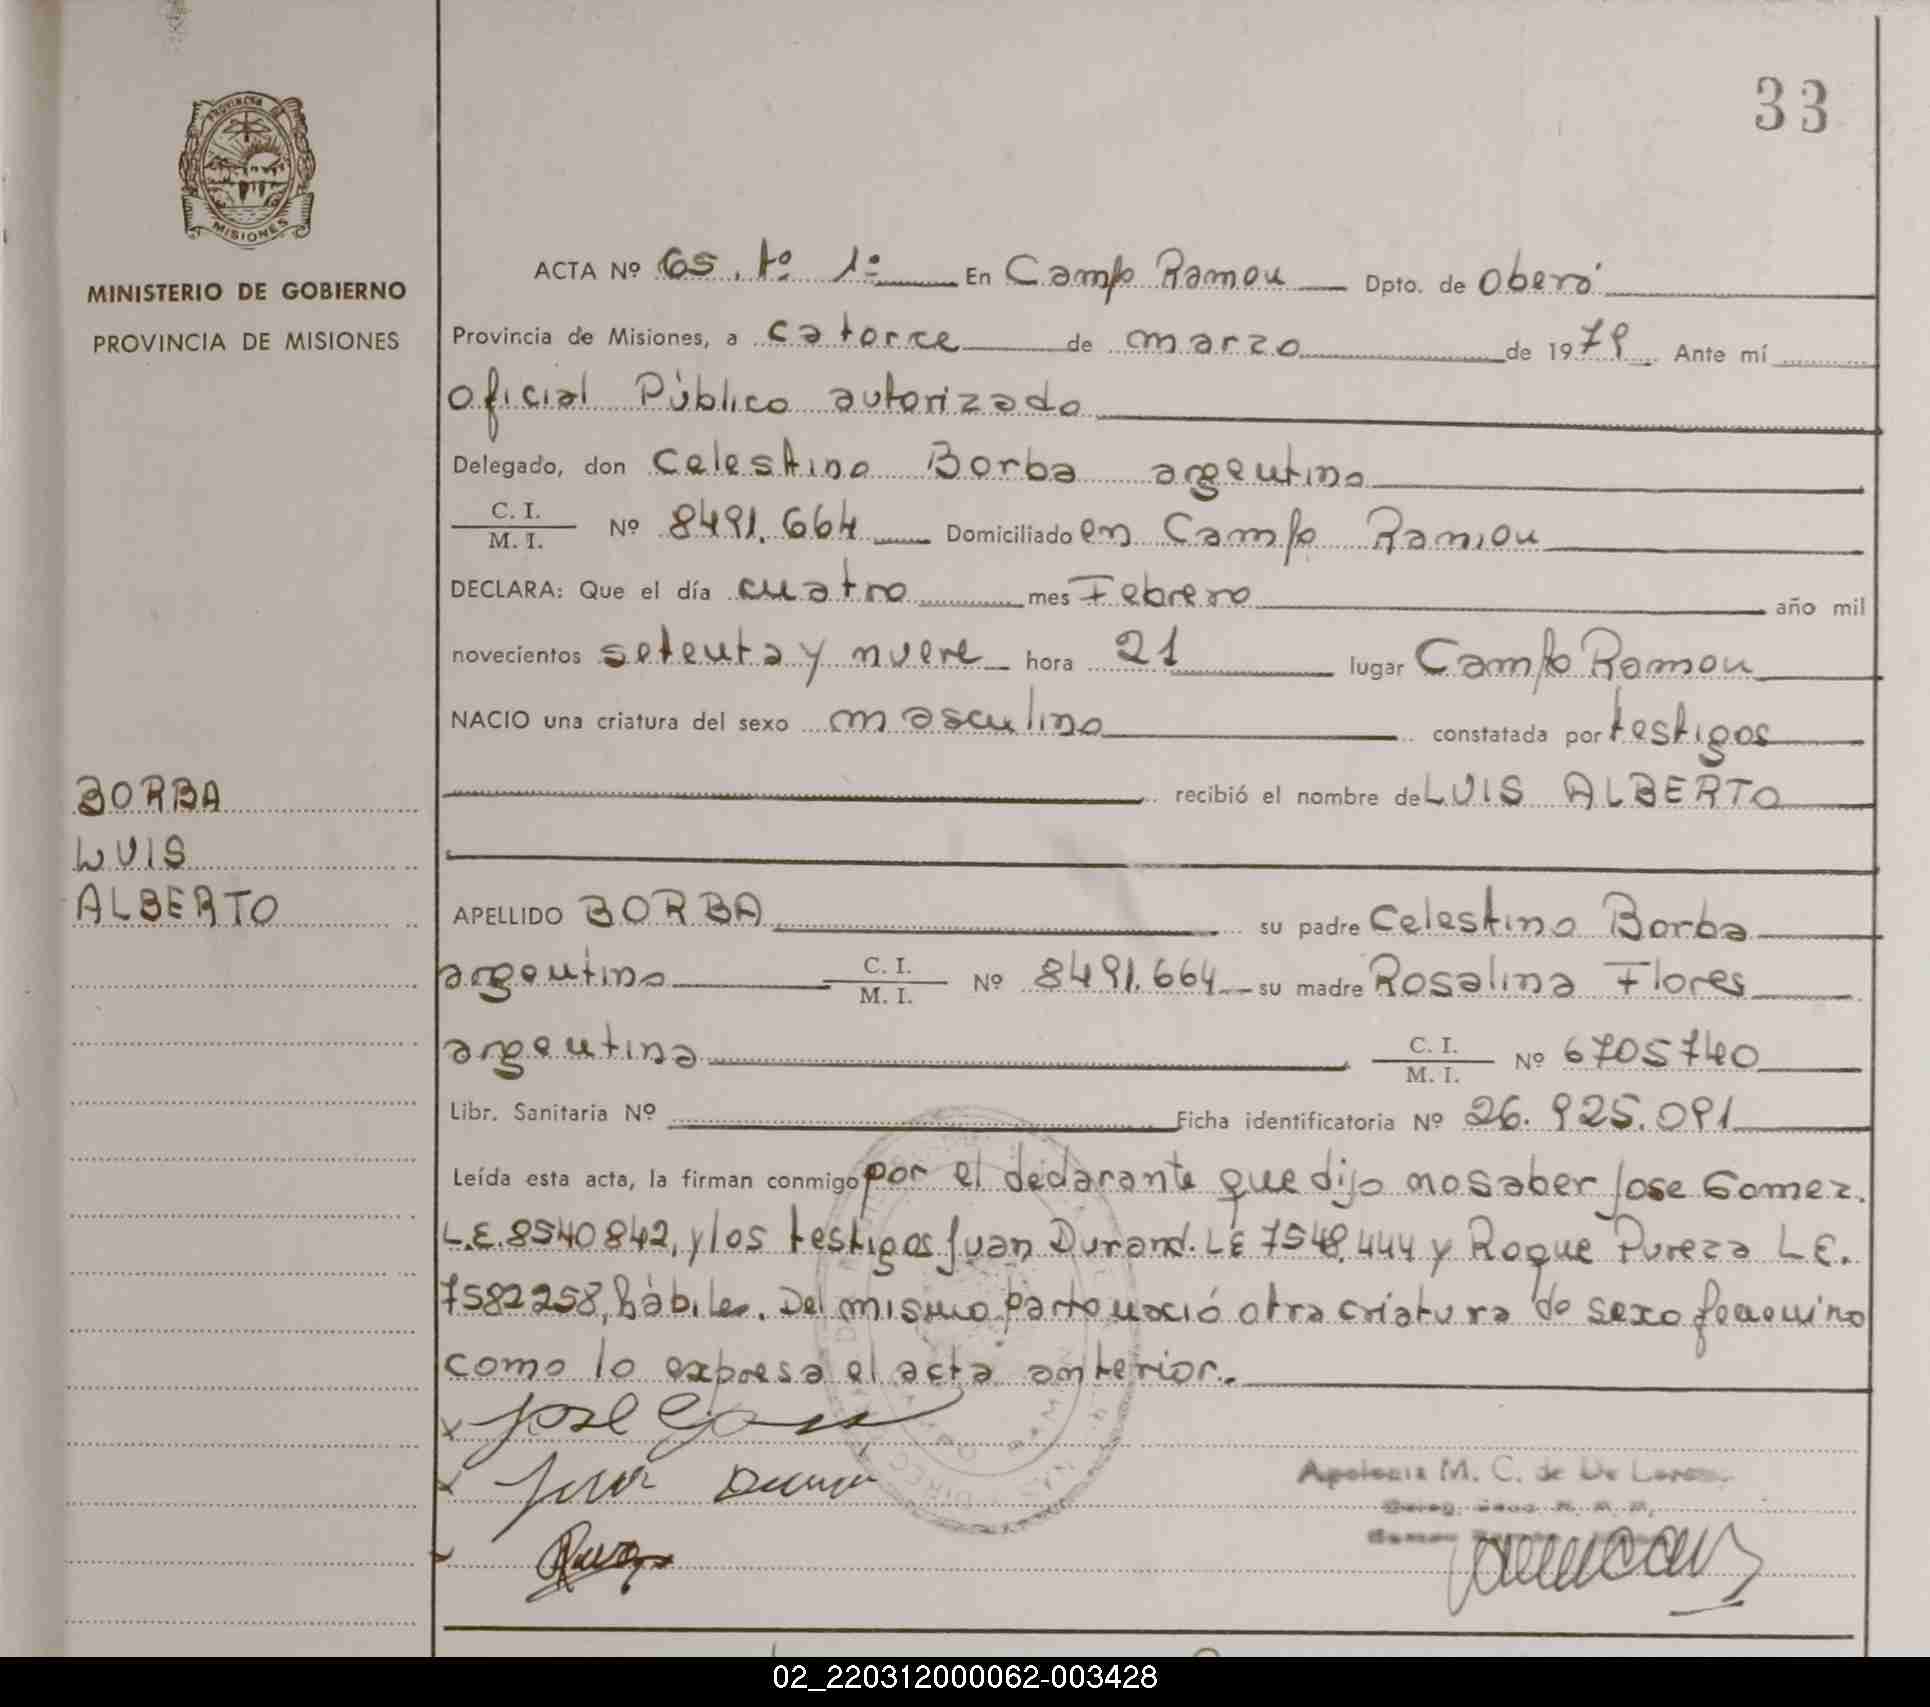 33
PROVINCIA DE
MISIONES
MINISTERIO DE GOBIERNO
PROVINCIA DE MISIONES
BORBA
LUIS
ALBERTO
ACTA Nº 65. tº 1º En Campo Ramon Dpto. de Oberá
Provincia de Misiones, a catorce de marzo de 1979 Ante mí
oficial Público autorizado
Delegado, don Celestino Borba argentino
C. I.
M. I. Nº 8491.664 Domiciliado en Campo Ramon
DECLARA: Que el día cuatro mes Febrero año mil
novecientos setenta y nueve hora 21 lugar Campo Ramon
NACIO una criatura del sexo masculino constatada por testigos
recibió el nombre de LUIS ALBERTO
APELLIDO BORBA su padre Celestino Borba
argentino C. I. M. I. Nº 8491.664 su madre Rosalina Flores
argentina C. I. M. I. Nº 6705740
Libr. Sanitaria Nº Ficha identificatoria Nº 26.925.091
Leída esta acta, la firman conmigo por el declarante que dijo no saber Jose Gomez.
L.E. 8540842, y los testigos Juan Durand. LE 7548.444 y Roque Pureza L.E.
7582258, hàbiles. Del mismo parto nació otra criatura de sexo femenino
como lo expresa el acta anterior.
x Jose
x Juan
M. C. de De
02_220312000062-003428